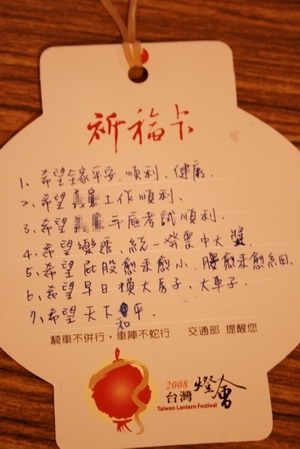 祈福卡
1、希望全家平安、順利、健康.
2、希望工作順利.
3、希望年底考試順利.
4、希望樂透、統一發票中大獎
5、希望屁股愈來愈小、腰愈來愈細.
6、希望早日換大房子、大車子.
7、希望天下和平.
騎車不併行，車陣不蛇行 交通部 提醒您
2008
台灣燈會
Taiwan Lantern Festival